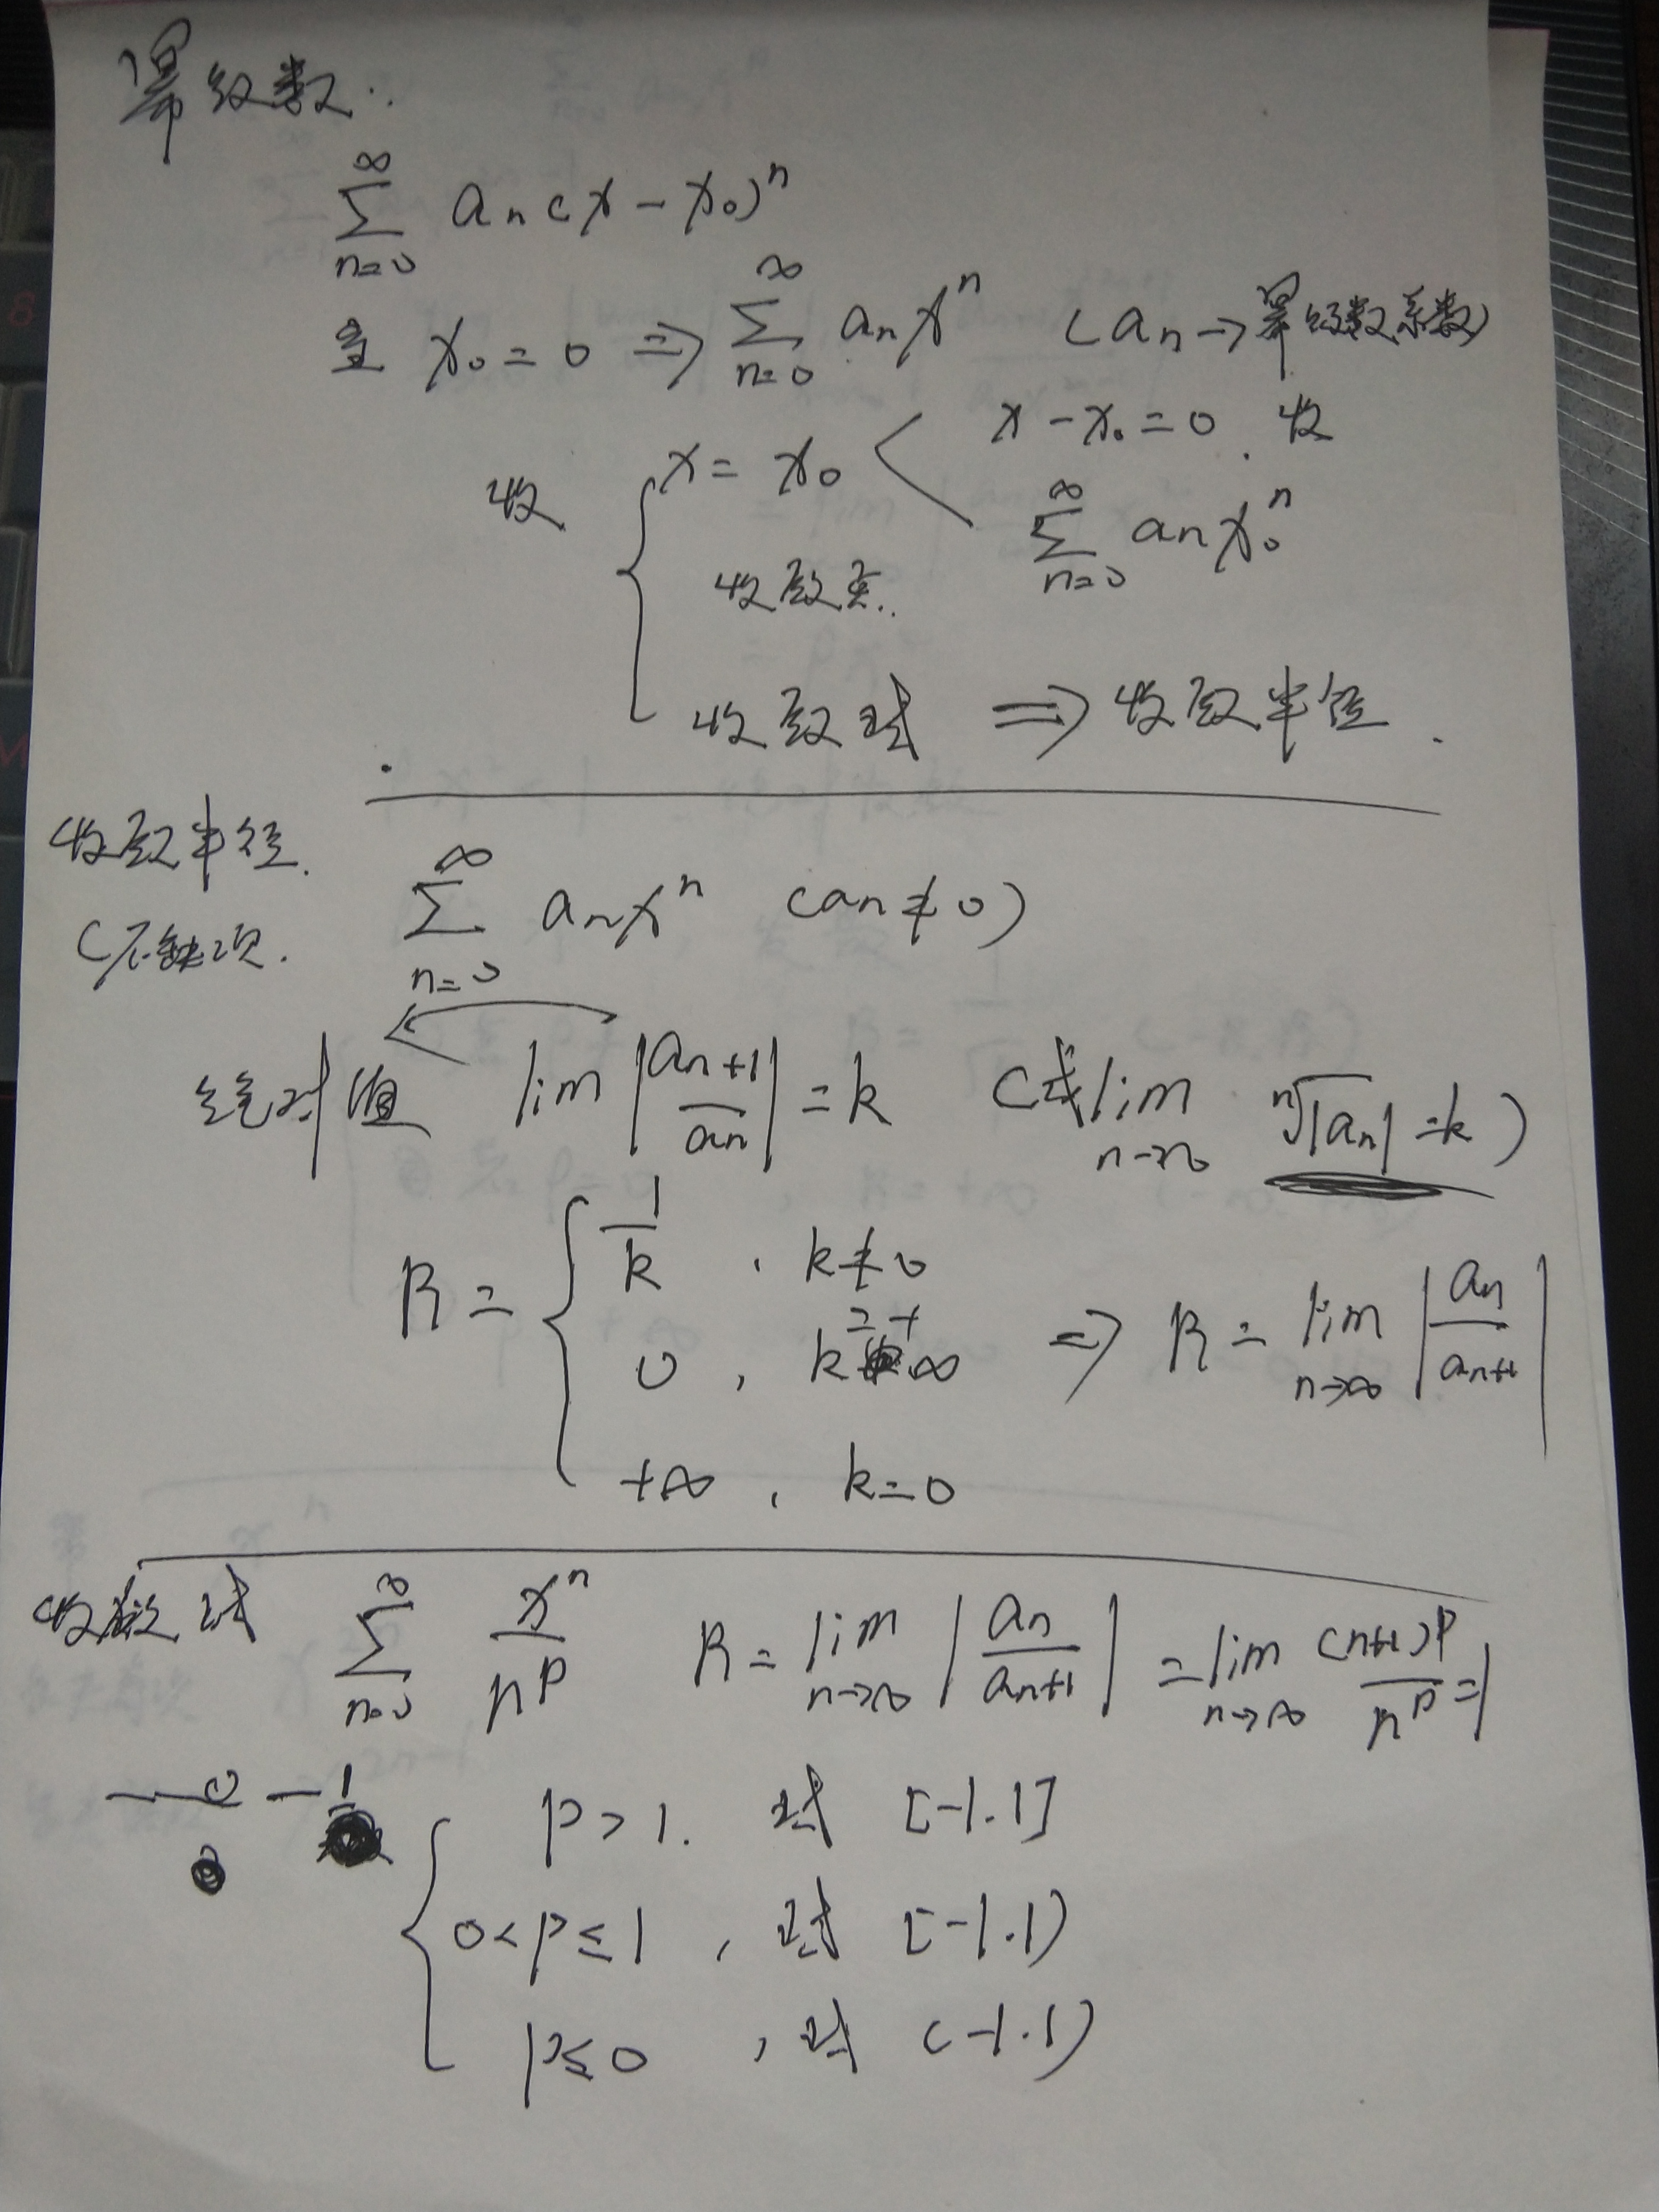 幂级数:
∑_{n=0}^{∞} a_n (x - x_0)^n
x_0 = 0 ⇒ ∑_{n=0}^{∞} a_n x^n (a_n → 幂级数系数)
收 { x = x_0 < x - x_0 = 0. 收
∑_{n=0}^{∞} a_n x_0^n
收敛点.
收敛域 ⇒ 收敛半径.
收敛半径. ∑_{n=0}^{∞} a_n x^n (a_n ≠ 0)
(不缺项.
绝对值 lim |a_{n+1}/a_n| = k (或 lim_{n→∞} ⁿ√|a_n| = k)
R = { 1/k , k ≠ 0
0 , k = +∞ ⇒ R = lim_{n→∞} |a_n/a_{n+1}|
+∞ , k = 0
收敛域 ∑_{n=0}^{∞} x^n/n^p R = lim_{n→∞} |a_n/a_{n+1}| = lim_{n→∞} (n+1)^p/n^p = 1
{ p > 1. 域 [-1.1]
0 < p ≤ 1 , 域 [-1.1)
p ≤ 0 , 域 (-1.1)